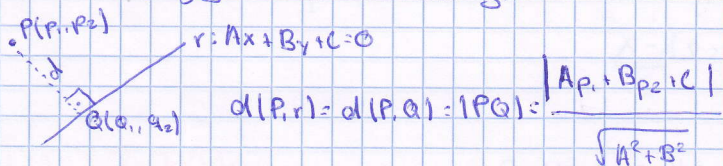 P(p₁, p₂)
r: Ax + By + C = 0
d
Q(q₁, q₂)
d(P, r) = d(P, Q) = |PQ| = |Ap₁ + Bp₂ + C| / √A² + B²